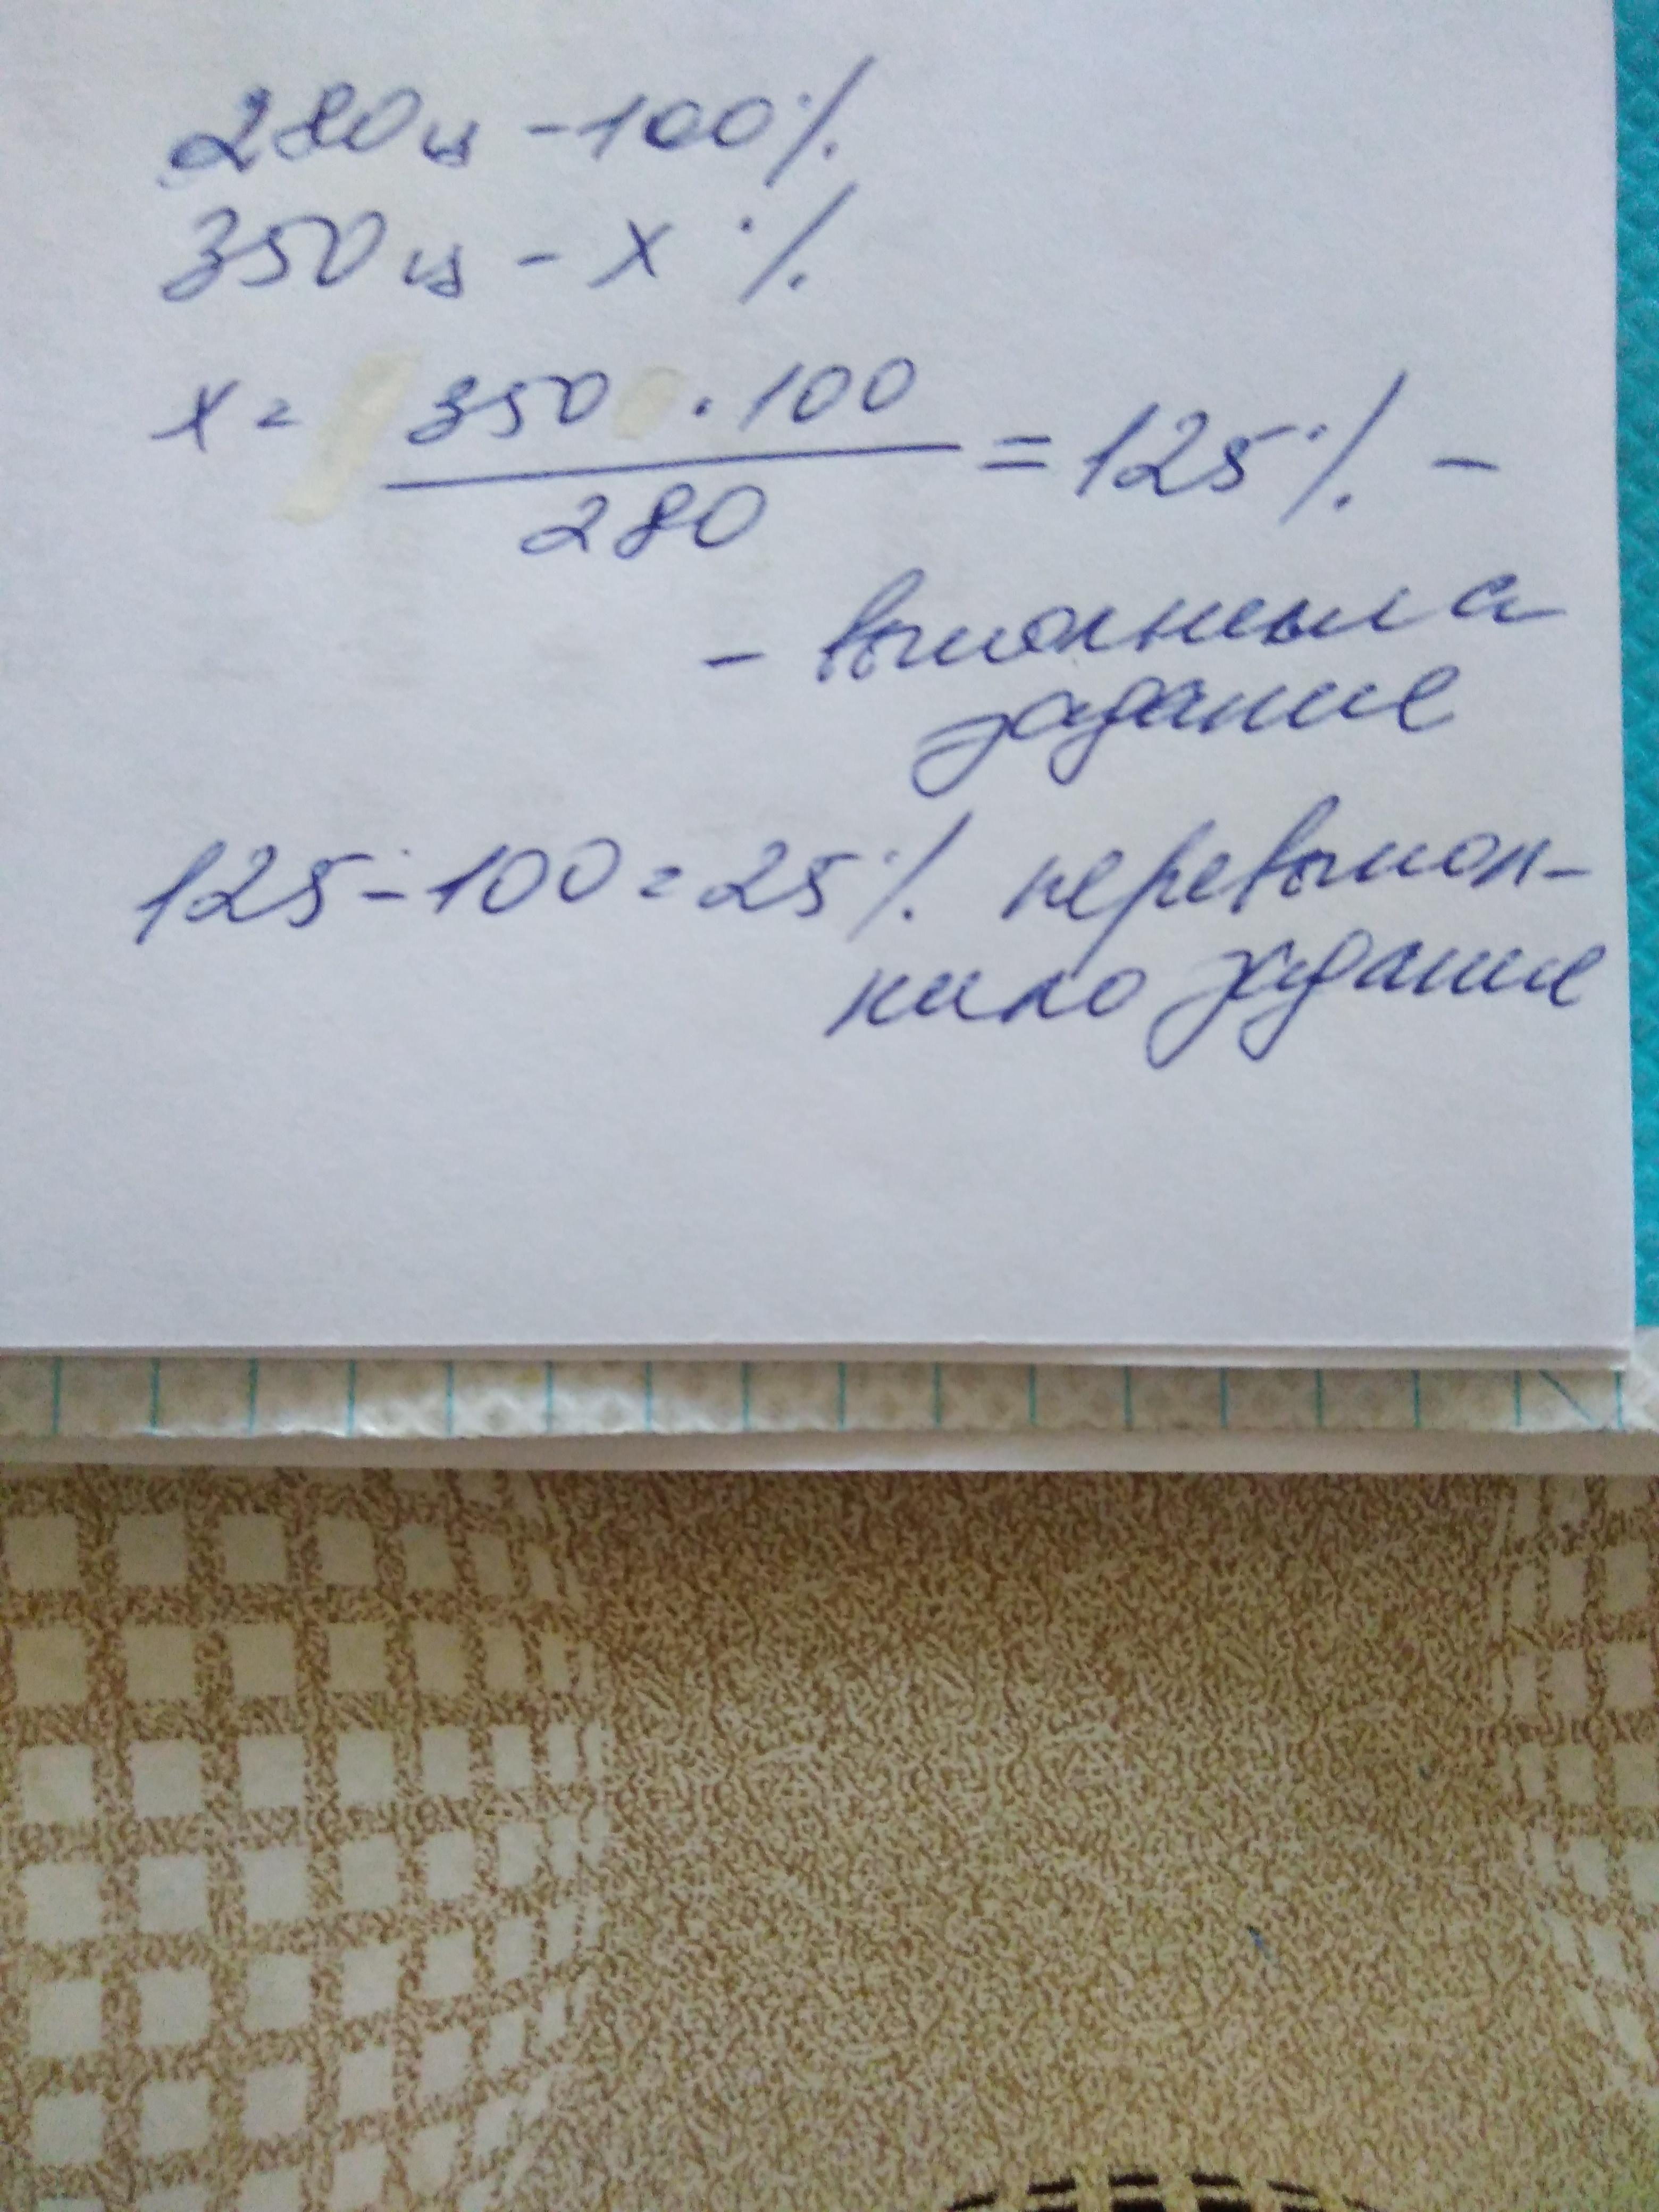 280ц - 100%
350ц - x %
x = 350 · 100 / 280 = 125% -
- выполнила
задание
125 - 100 = 25% перевыпол-
нило задание